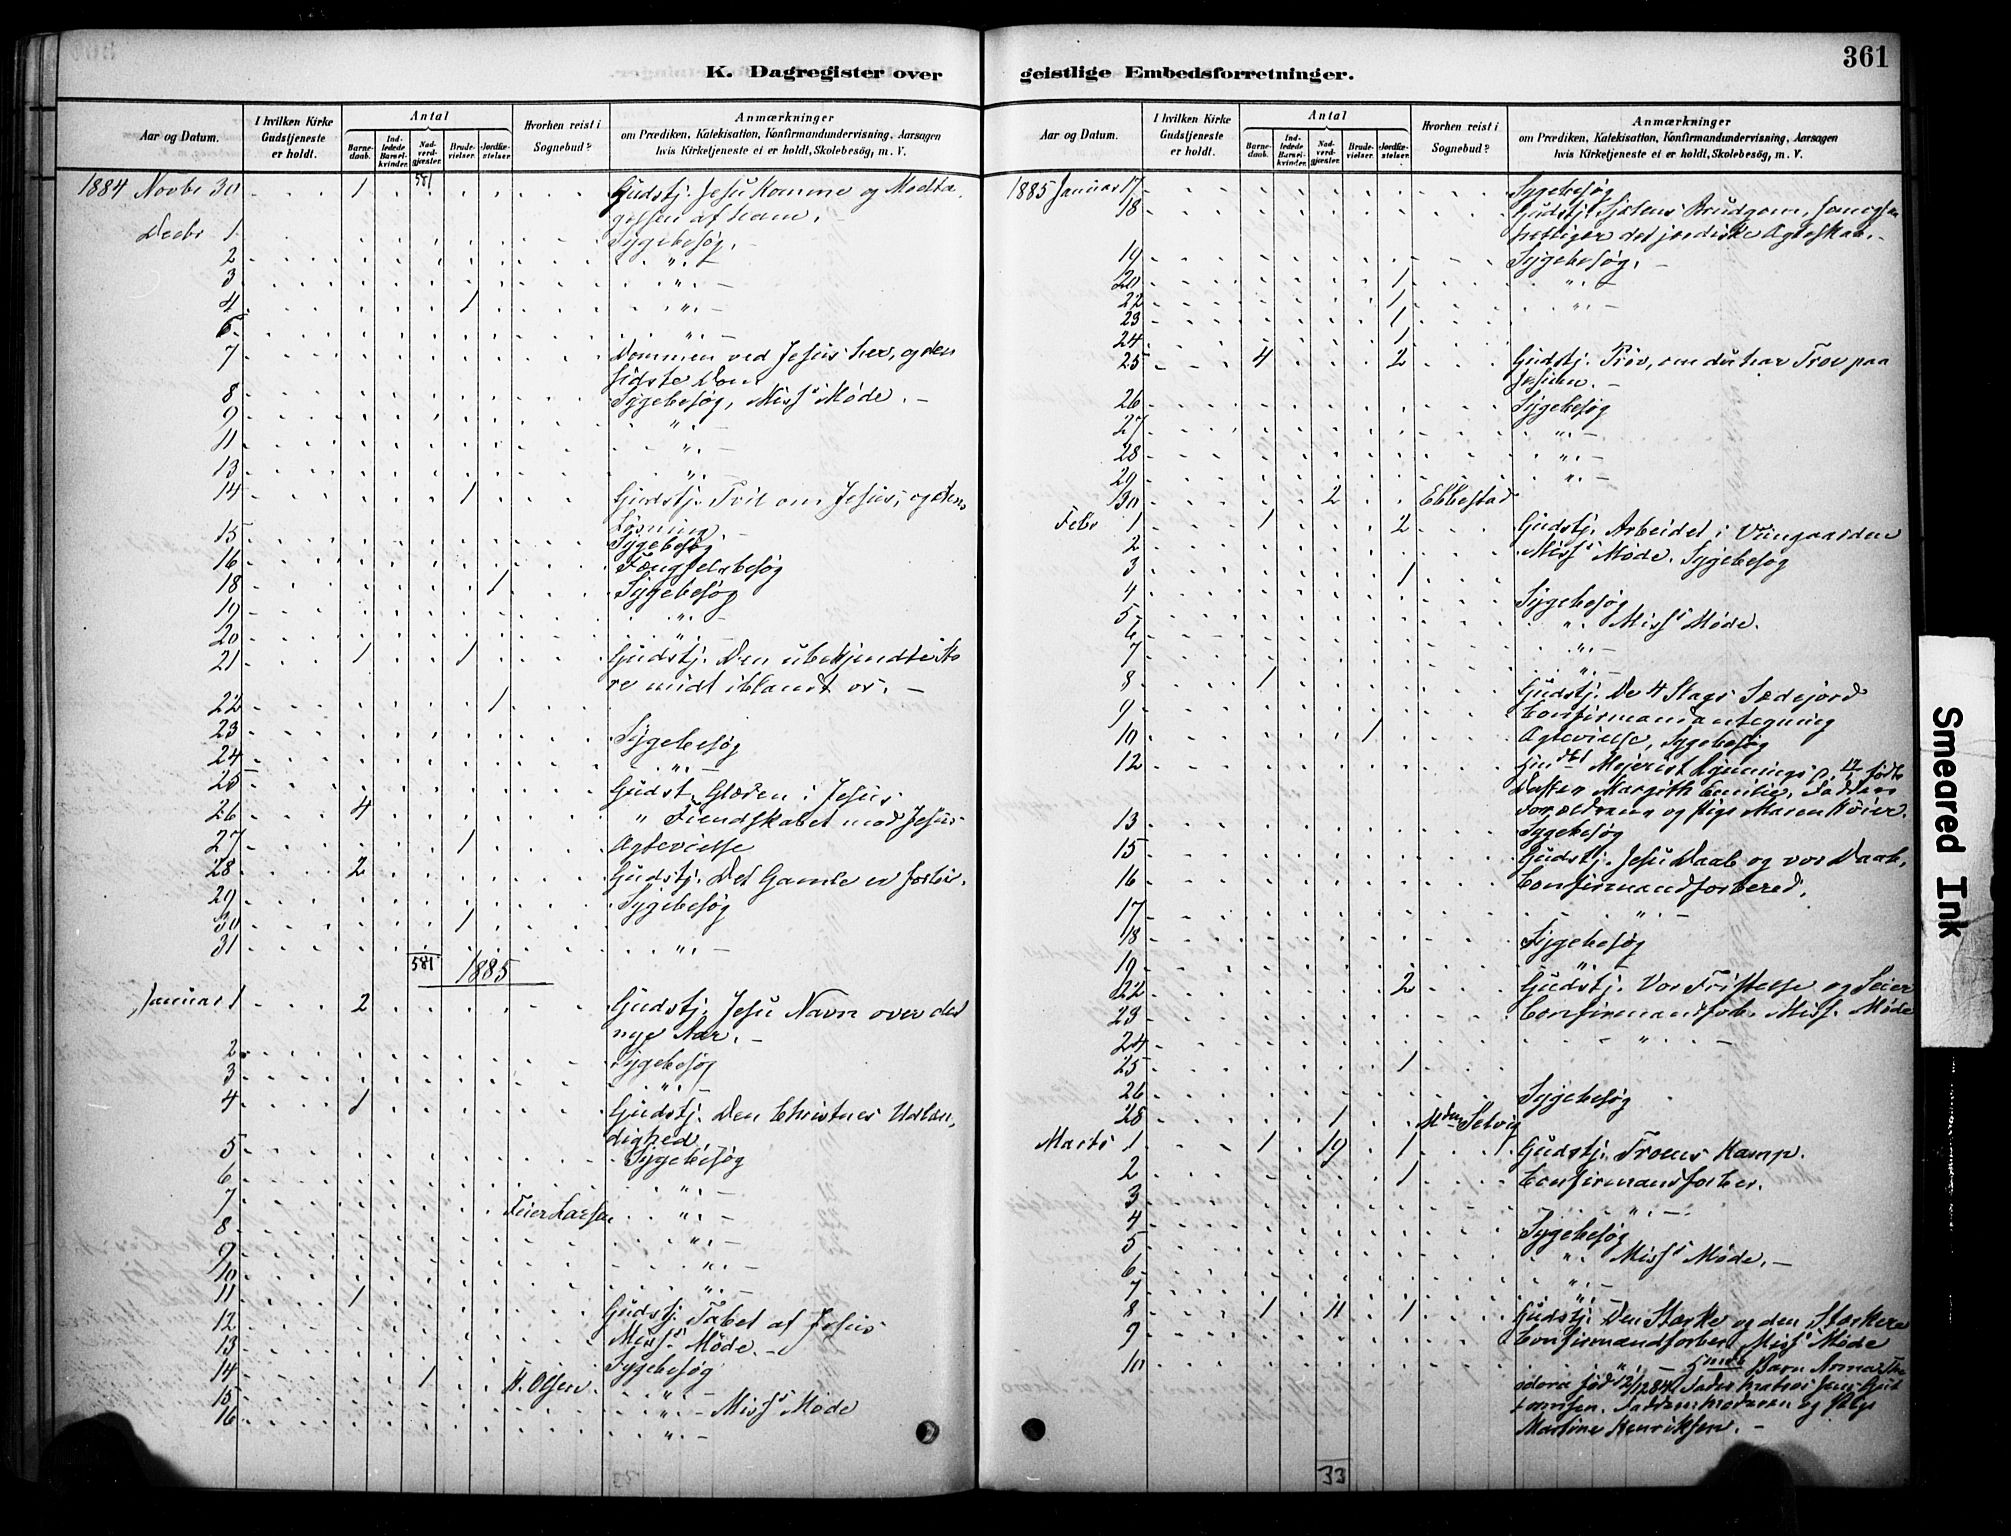 361
K. Dagregister over geistlige Embedsforretninger.
Aar og Datum.
I hvilken Kirke Gudstjeneste er holdt.
Antal
Barnedaab.
Indledede Barselkvinder.
Nadverdgjæster.
Brudevielser.
Jordfæstelser.
Hvorhen reist i Sognebud?
Anmærkninger
om Prædiken, Katekisation, Konfirmandundervisning, Aarsagen
hvis Kirketjeneste ei er holdt, Skolebesög, m. V.
1884 Novbr 30 1 581 Gudstj. Jesu Komme og Modta
gelsen af ham.
Decbr 1 Sygebesøg.
2 " . —
3 " . —
4 1 " . —
6 " . —
7 Dommen ved Jesus her, og den
sidste Dom
8 Sygebesøg, Miss's Møde. —
9 " . —
11 " . —
13 " .
14 1 Gudstj. Tvil om Jesus, og dens
Løsning
15 Sygebesøg
16 Fængselsbesøg
18 1 Sygebesøg
19 " . —
20 " . —
21 1 1 Gudstj. Den ubekjendte Sto
re midt iblandt os. —
22 1
23 Sygebesøg
24 " . —
25 Gudst. Glæden i Jesus
26 4 " Fiendskabet mod Jesus
27 1 Agtevielse
28 2 Gudstj. Det Gamle er forbi.
29 Sygebesøg
30 1
31 " . —
581 1885
Januar 1 2 Gudstj. Jesu Navn over det
nye Aar. —
2 Sygebesøg
3 " . —
4 1 Gudstj. Den Christnes
5 Sygebesøg
6 " . —
7 " . —
8 " . —
9 " . —
10 " . —
11 1 Gudstj. Tabet af Jesus
12 Miss's Møde. —
13 Sygebesøg
14 1 H. Olsen " . —
15 " . — Miss's Møde
16 " . —
Aar og Datum.
I hvilken Kirke Gudstjeneste er holdt.
Antal
Barnedaab.
Indledede Barselkvinder.
Nadverdgjæster.
Brudevielser.
Jordfæstelser.
Hvorhen reist i Sognebud?
Anmærkninger
om Prædiken, Katekisation, Konfirmandundervisning, Aarsagen
hvis Kirketjeneste ei er holdt, Skolebesög, m. V.
1885 Januar 17 Sygebesøg
18 Gudstj. Sjælens Brudgom,
det jordiske Agteskab. —
19 Sygebesøg. —
20 1 " . —
22 1 " . —
23 1
24 1
25 4 2 Gudstj. Prøv, om du har Trov paa
Jesum. —
26 Sygebesøg
27 " . —
28 " . —
29 " . —
30 2 Ekkestad
Febr 1 1 2 Gudstj. Arbeidet i Viingaarden
2 Miss's Møde. Sygebesøg
3 1
4 Sygebesøg
5 " . Miss's Møde.
6 " . —
7 " .
8 1 Gudstj. De 4 Slags Sædejord
9 Confirmandantegning
10 1 Agtevielse, Sygebesøg
12 Meierist
Datter Margith Emilie,
og Pige Maren
13 Sygebesøg
15 Gudstj. Jesu Daab og vor Daab.
16 Confirmandforbered.
17 " . —
18 Sygebesøg
19 " . —
22 2 Gudstj. Vor Fristelse og Seier
23 Confirmandforb. Miss. Møde
24 " . —
25 1
26 Sygebesøg
28 1 Selvig
Marts 1 1 19 1 Gudstj. Troens Kamp.
2 1 Confirmandforber.
3 " . —
4 Sygebesøg
5 " . Miss's Møde. —
6 " . —
7
8 1 11 1 Gudstj. Den Stærke og den Stærkere
9 Confirmandforber. Miss's Møde
10 Barn
fød
Martine Henriksen. —
33
Smeared Ink